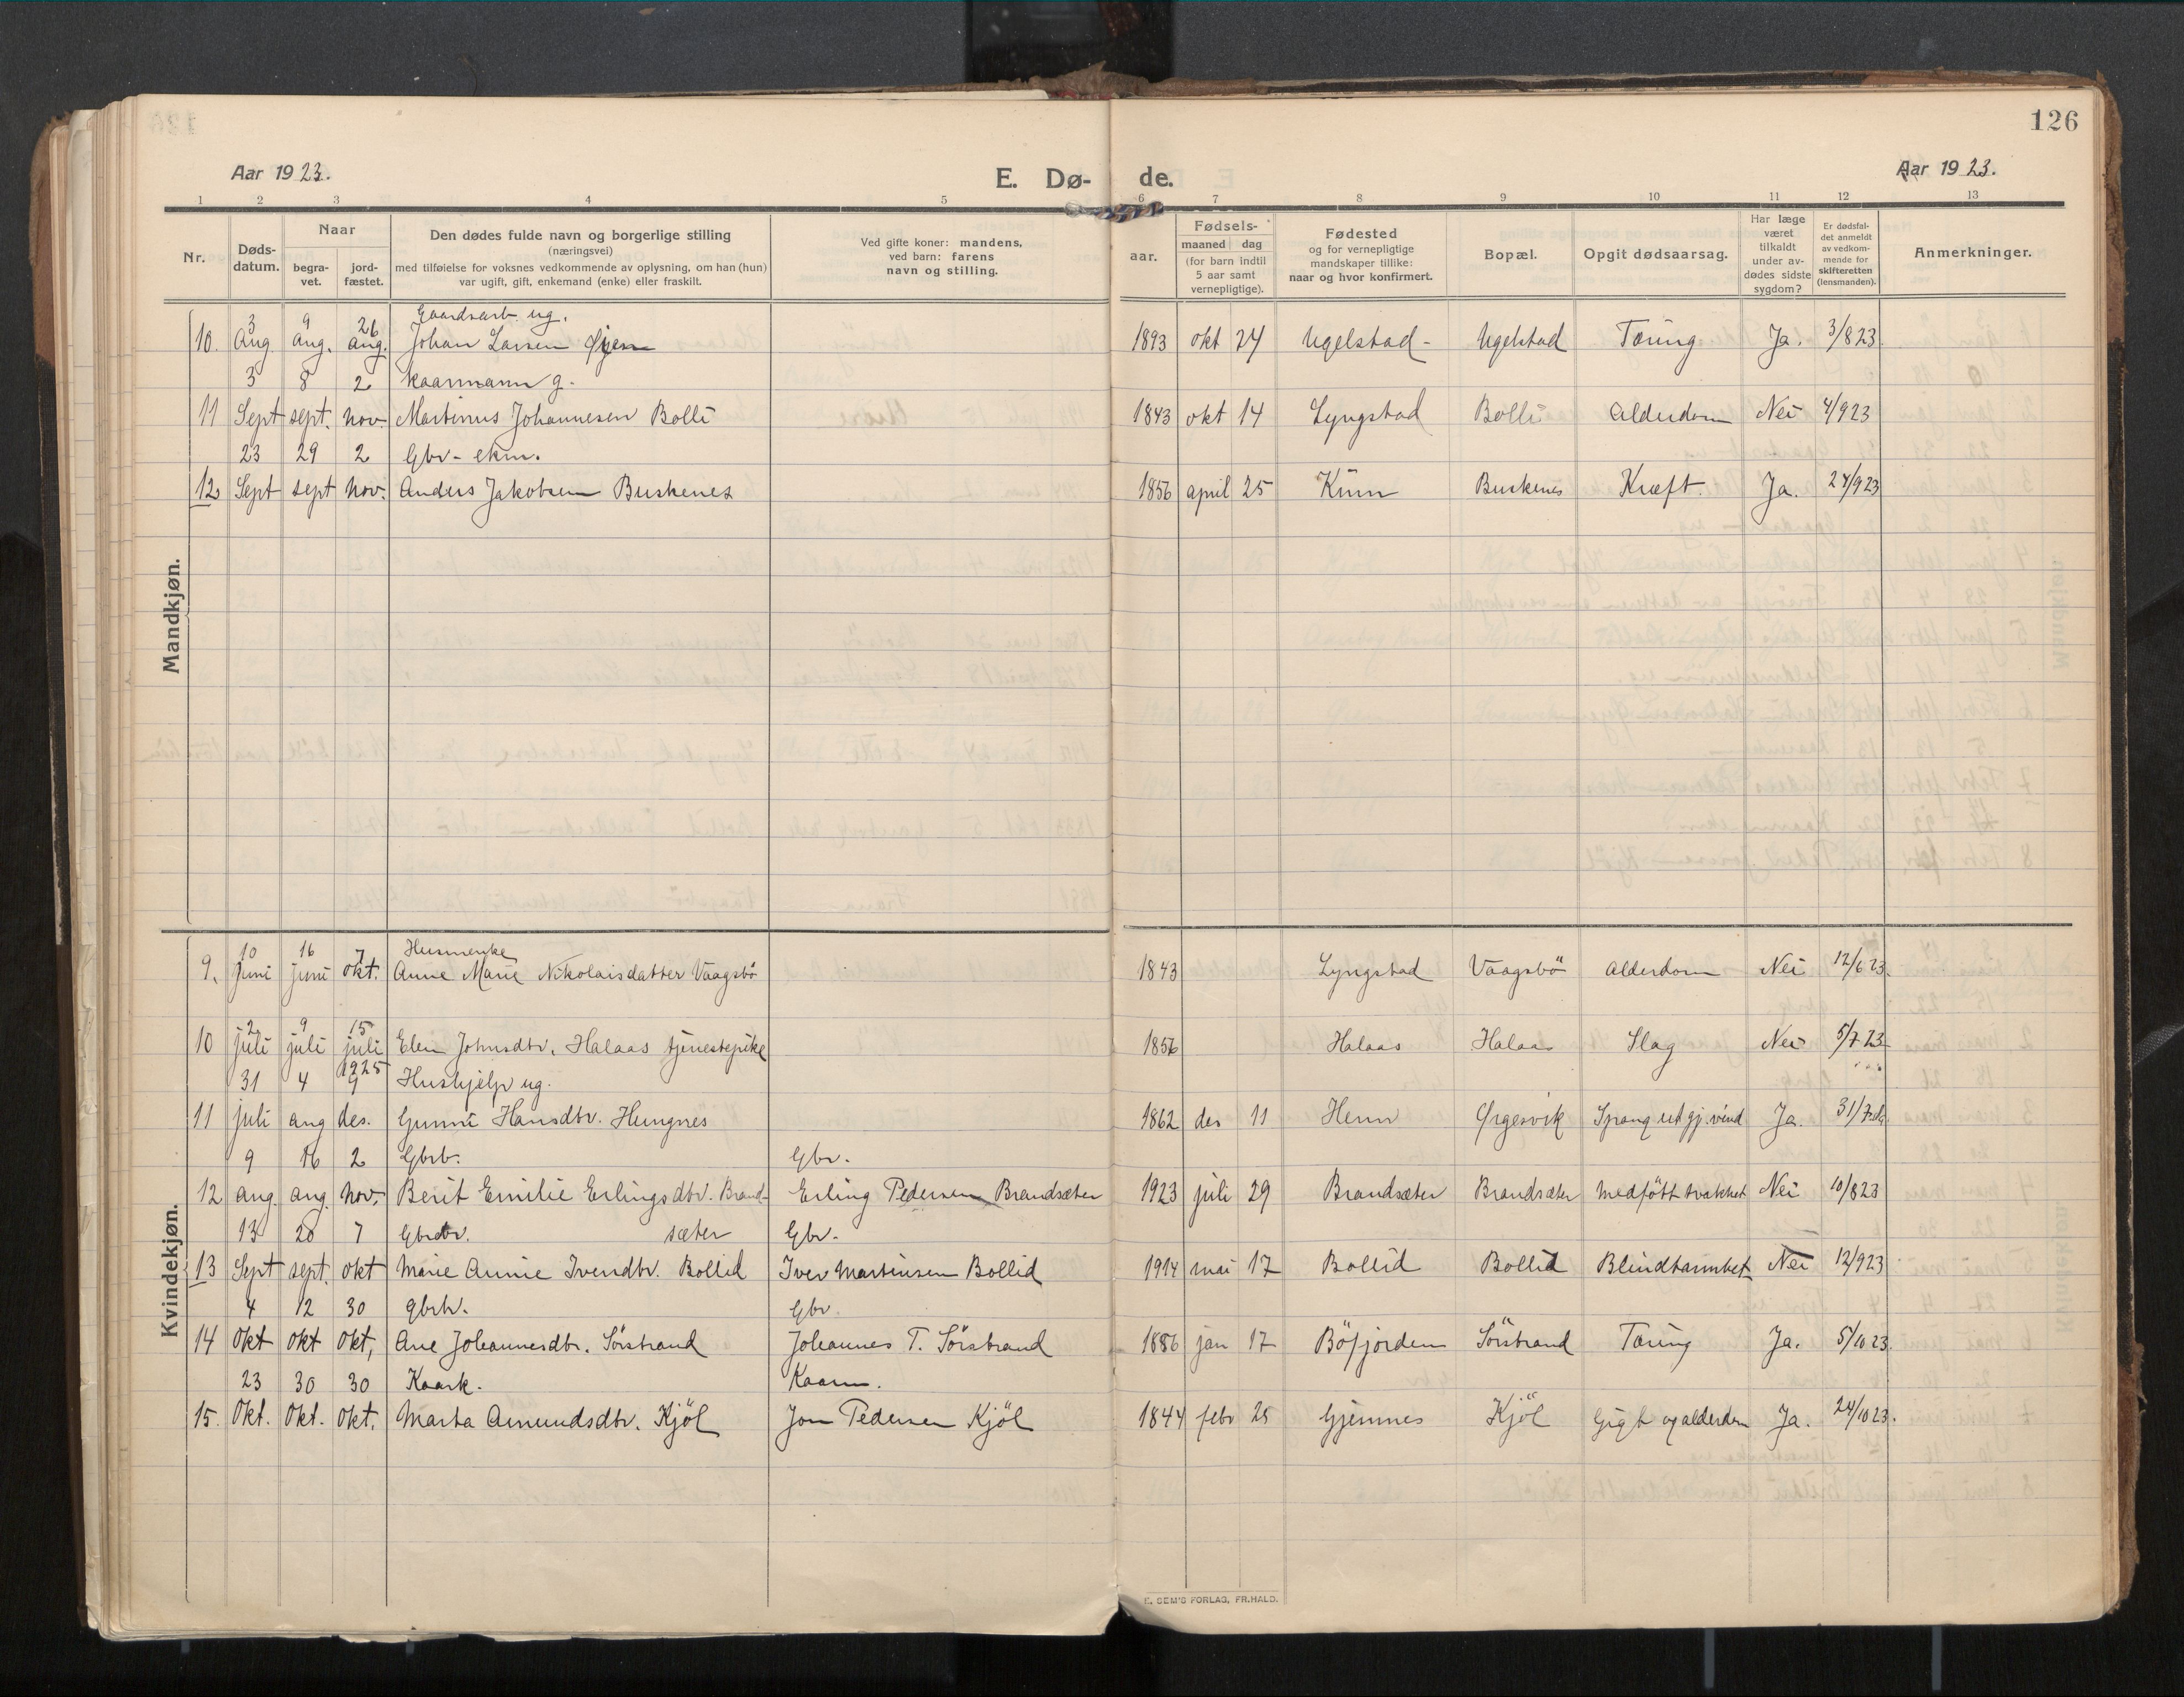 126
Aar 1923.
E. Dø-
de.
Aar 1923.
1 2 3 4 5 6 7 8 9 10 11 12 13
Nr.
Døds-
datum.
Naar
begra-
vet.
jord-
fæstet.
Den dødes fulde navn og borgerlige stilling
(næringsvei)
med tilføielse for voksnes vedkommende av oplysning, om han (hun)
var ugift, gift, enkemand (enke) eller fraskilt.
Ved gifte koner: mandens,
ved barn: farens
navn og stilling.
aar.
Fødsels-
maaned dag
(for barn indtil
5 aar samt
vernepligtige).
Fødested
og for vernepligtige
mandskaper tillike:
naar og hvor konfirmert.
Bopæl.
Opgit dødsaarsag.
Har læge
været
tilkaldt
under av-
dødes sidste
sygdom?
Er dødsfal-
det anmeldt
av vedkom-
mende for
skifteretten
(lensmanden).
Anmerkninger.
Mandkjøn.
3 9 26 Gaardsarb. ug.
10. Aug Aug. Aug. Johan Larsen Øyen 1893 okt 24 Ugelstad- Ugelstad Tæring Ja. 3/8 23.
3 8 2 Kaarmann g.
11 Sept sept. nov. Martinus Johannesen Bolli 1843 okt 14 Lyngstad Bolli Alderdom Nei 4/9 23
23 29 2 Gbr- ekm.
12 Sept sept nov. Anders Jakobsen Buskenes 1856 april 25 Kinn Buskenes Kræft. Ja. 24/9 23
Kvindekjøn.
10 16 7 Husmenke
9. juni juni okt. Anne Marie Nikolaisdatter Vaagsbö 1843 Lyngstad Vaagsbö Alderdom Nei 12/6 23.
2 9 15
10 juli juli juli Elen Johnsdtr. Halaas tjenestepike 1856 Halaas Halaas Slag Nei 5/7 23
1925
31 4 9 Hushjelp ug.
11 juli aug des. Gunni Hansdtr. Hungnes 1862 des 11 Henn Ørgesvik Sprang ut gj. vind Ja. 31/7
9 16 2 Gbrb. Gbr.
12 aug. aug. Nov. Berit Emilie Erlingsdtr. Brand- Erling Pedersen Brandsæter 1923 juli 29 Brandsæter Brandsæter medfött svakhet Nei 10/8 23
13 20 7 Gbrdtr. sæter Gbr.
13 Sept sept. okt Marie Annie Iversdtr. Bollid Iver Martinsen Bollid 1914 mai 17 Bollid Bollid Blindtarmbet. Nei 12/9 23
4 12 30 gbrb. Gbr.
14 Okt okt okt, Ane Johannesdtr. Sörstrand Johannes T. Sörstrand 1886 jan 17 Böfjorden Sörstrand Tæring Ja. 5/10 23.
23 30 30 Kaark. Kaarm.
15. Okt. Okt. okt. Marta Amundsdtr. Kjöl Jon Pedersen Kjöl 1844 febr 25 Gjemnes Kjöl Gigt og alderdom Ja. 24/10 23.
E. SEM'S FORLAG, FR.HALD.